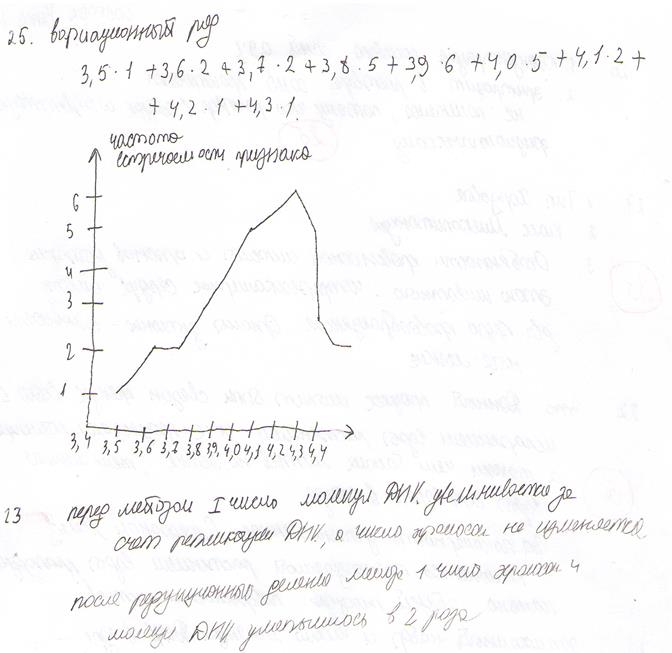 25. вариационный ряд
3,5·1 +3,6·2 +3,7·2 +3,8·5 +3,9·6 +4,0·5 +4,1·2 +
+ 4,2·1 +4,3·1
частота
встречаемости признака
6
5
4
3
2
1
3,4 3,5 3,6 3,7 3,8 3,9 4,0 4,1 4,2 4,3 4,4
23 перед мейозом I число молекул ДНК увеличивается за
счет репликации ДНК, а число хромосом не изменяется
после редукционного деления мейоза 1 число хромосом и
молекул ДНК уменьшилось в 2 раза